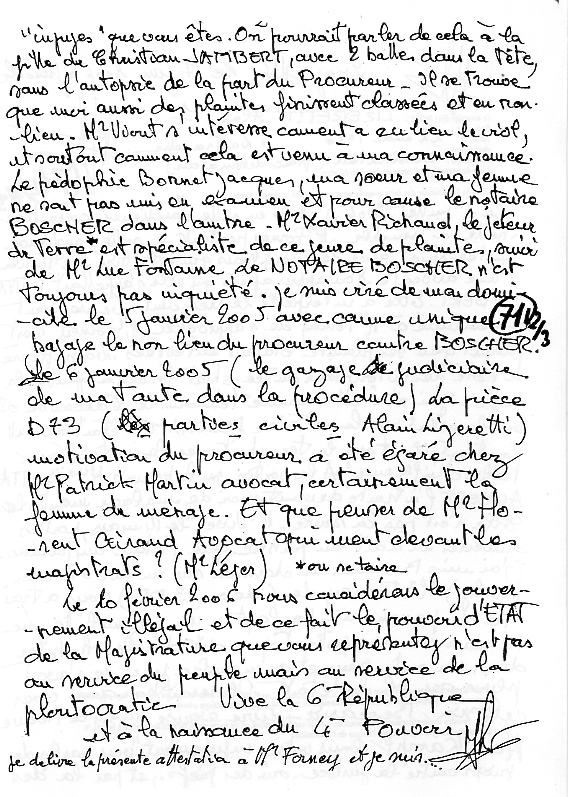 "injuges" que vous êtes. On pourrait parler de cela à la
fille de Christian JAMBERT, avec 2 balles dans la Tête,
sans l'autopsie de la part du Procureur - Il se Trouve
que moi aussi des plaintes finissent classées et en non-
-lieu. Mr Viout s'intéresse comment a eu lieu le viol,
et surtout comment cela est venu à ma connaissance.
Le pédophile Bonnet Jacques, ma soeur et ma femme
ne sont pas mis en examen et pour cause le notaire
BOSCHER dans l'ombre. Mr Xavier Richaud, le jeteur
de Terre* est spécialiste de ce genre de plainte, suivi
de Mr Luc Fontaine. Le NOTAIRE BOSCHER n'est
toujours pas inquiété. je suis viré de mon domi-
-cile le 5 janvier 2005 avec comme unique
71 V2/3
bagage le non lieu du procureur contre BOSCHER.
le 6 janvier 2005 (le gazage judiciaire
de ma tante dans la procédure) La pièce
D73 (les parties civiles Alain Lizeretti)
motivation du procureur a été égaré chez
Me Patrick Martin avocat, certainement la
femme de ménage. Et que penser de Me Flo-
-rent Giraud Avocat qui ment devant les
magistrats ? (Mr Léger) *ou notaire
Le 10 février 2006 nous considérons le gouver-
-nement illégal et de ce fait le pouvoir d'ETAT
de la Magistrature que vous représentez n'est pas
au service du peuple mais au service de la
ploutocratie Vive la 6e République
et à la naissance du 4e Pouvoir
je délivre la présente attestation à Mr Forney et je suis...